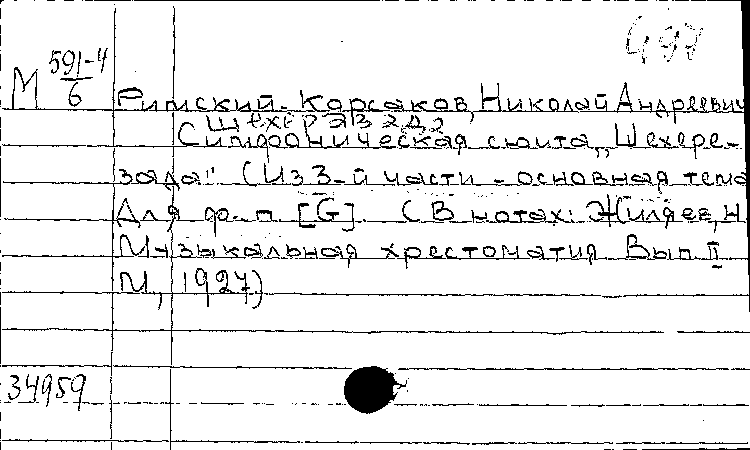 497
М 591-4/6
Римский-Корсаков, Николай Андреевич
Шехеразада
Симфоническая сюита „Шехере-
зада" (Из 3-й части - основная тема
Для ф-п. [G]. (В нотах: Жиляев, Н.
Музыкальная хрестоматия Вып II
М., 1927)
34959